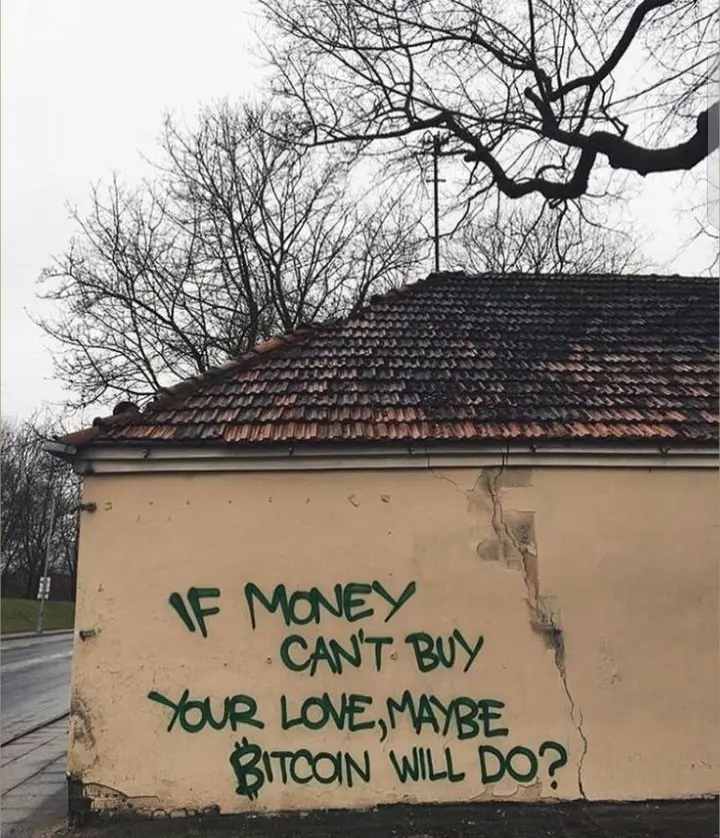 IF MONEY
CAN'T BUY
YOUR LOVE, MAYBE
₿ITCOIN WILL DO?